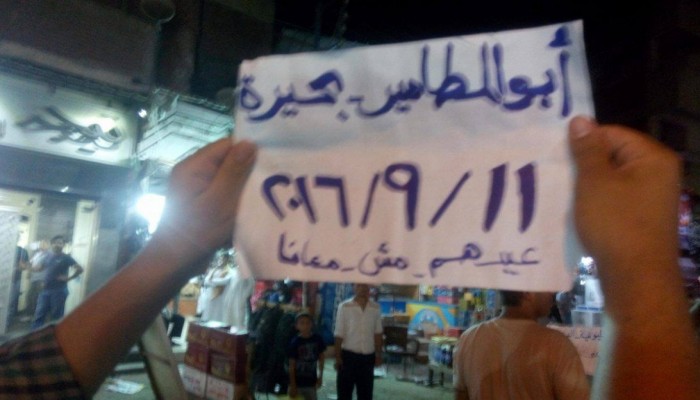 أبوالمطامير - بحيرة
٢٠١٦/٩/١١
عيدهم - مش - معانا